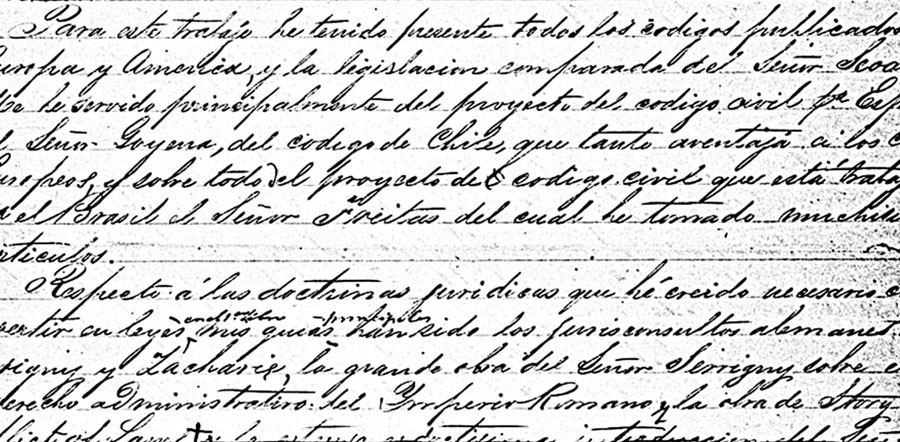 Para este trabajo he tenido presente todos los codigos publicados
uropa y America, y la legislacion comparada del Señor Seoa
he servido principalmente del proyecto del codigo civil pa Esp
l Señor Goyena, del codigo de Chile, que tanto aventaja á los c
uropeos, y sobre todo del proyecto del codigo civil que está traba
el Brasil el Señor Freitas del cual he tomado muchísi
rticulos.
Respecto á las doctrinas juridicas que hé creido necesario c
vertir en leyes mis guias principales han sido los jurisconsultos alemanes
vigny y Zacharie, la grande obra del Señor Serrigny sobre e
derecho administrativo del Ymperio Romano, y la obra de Story